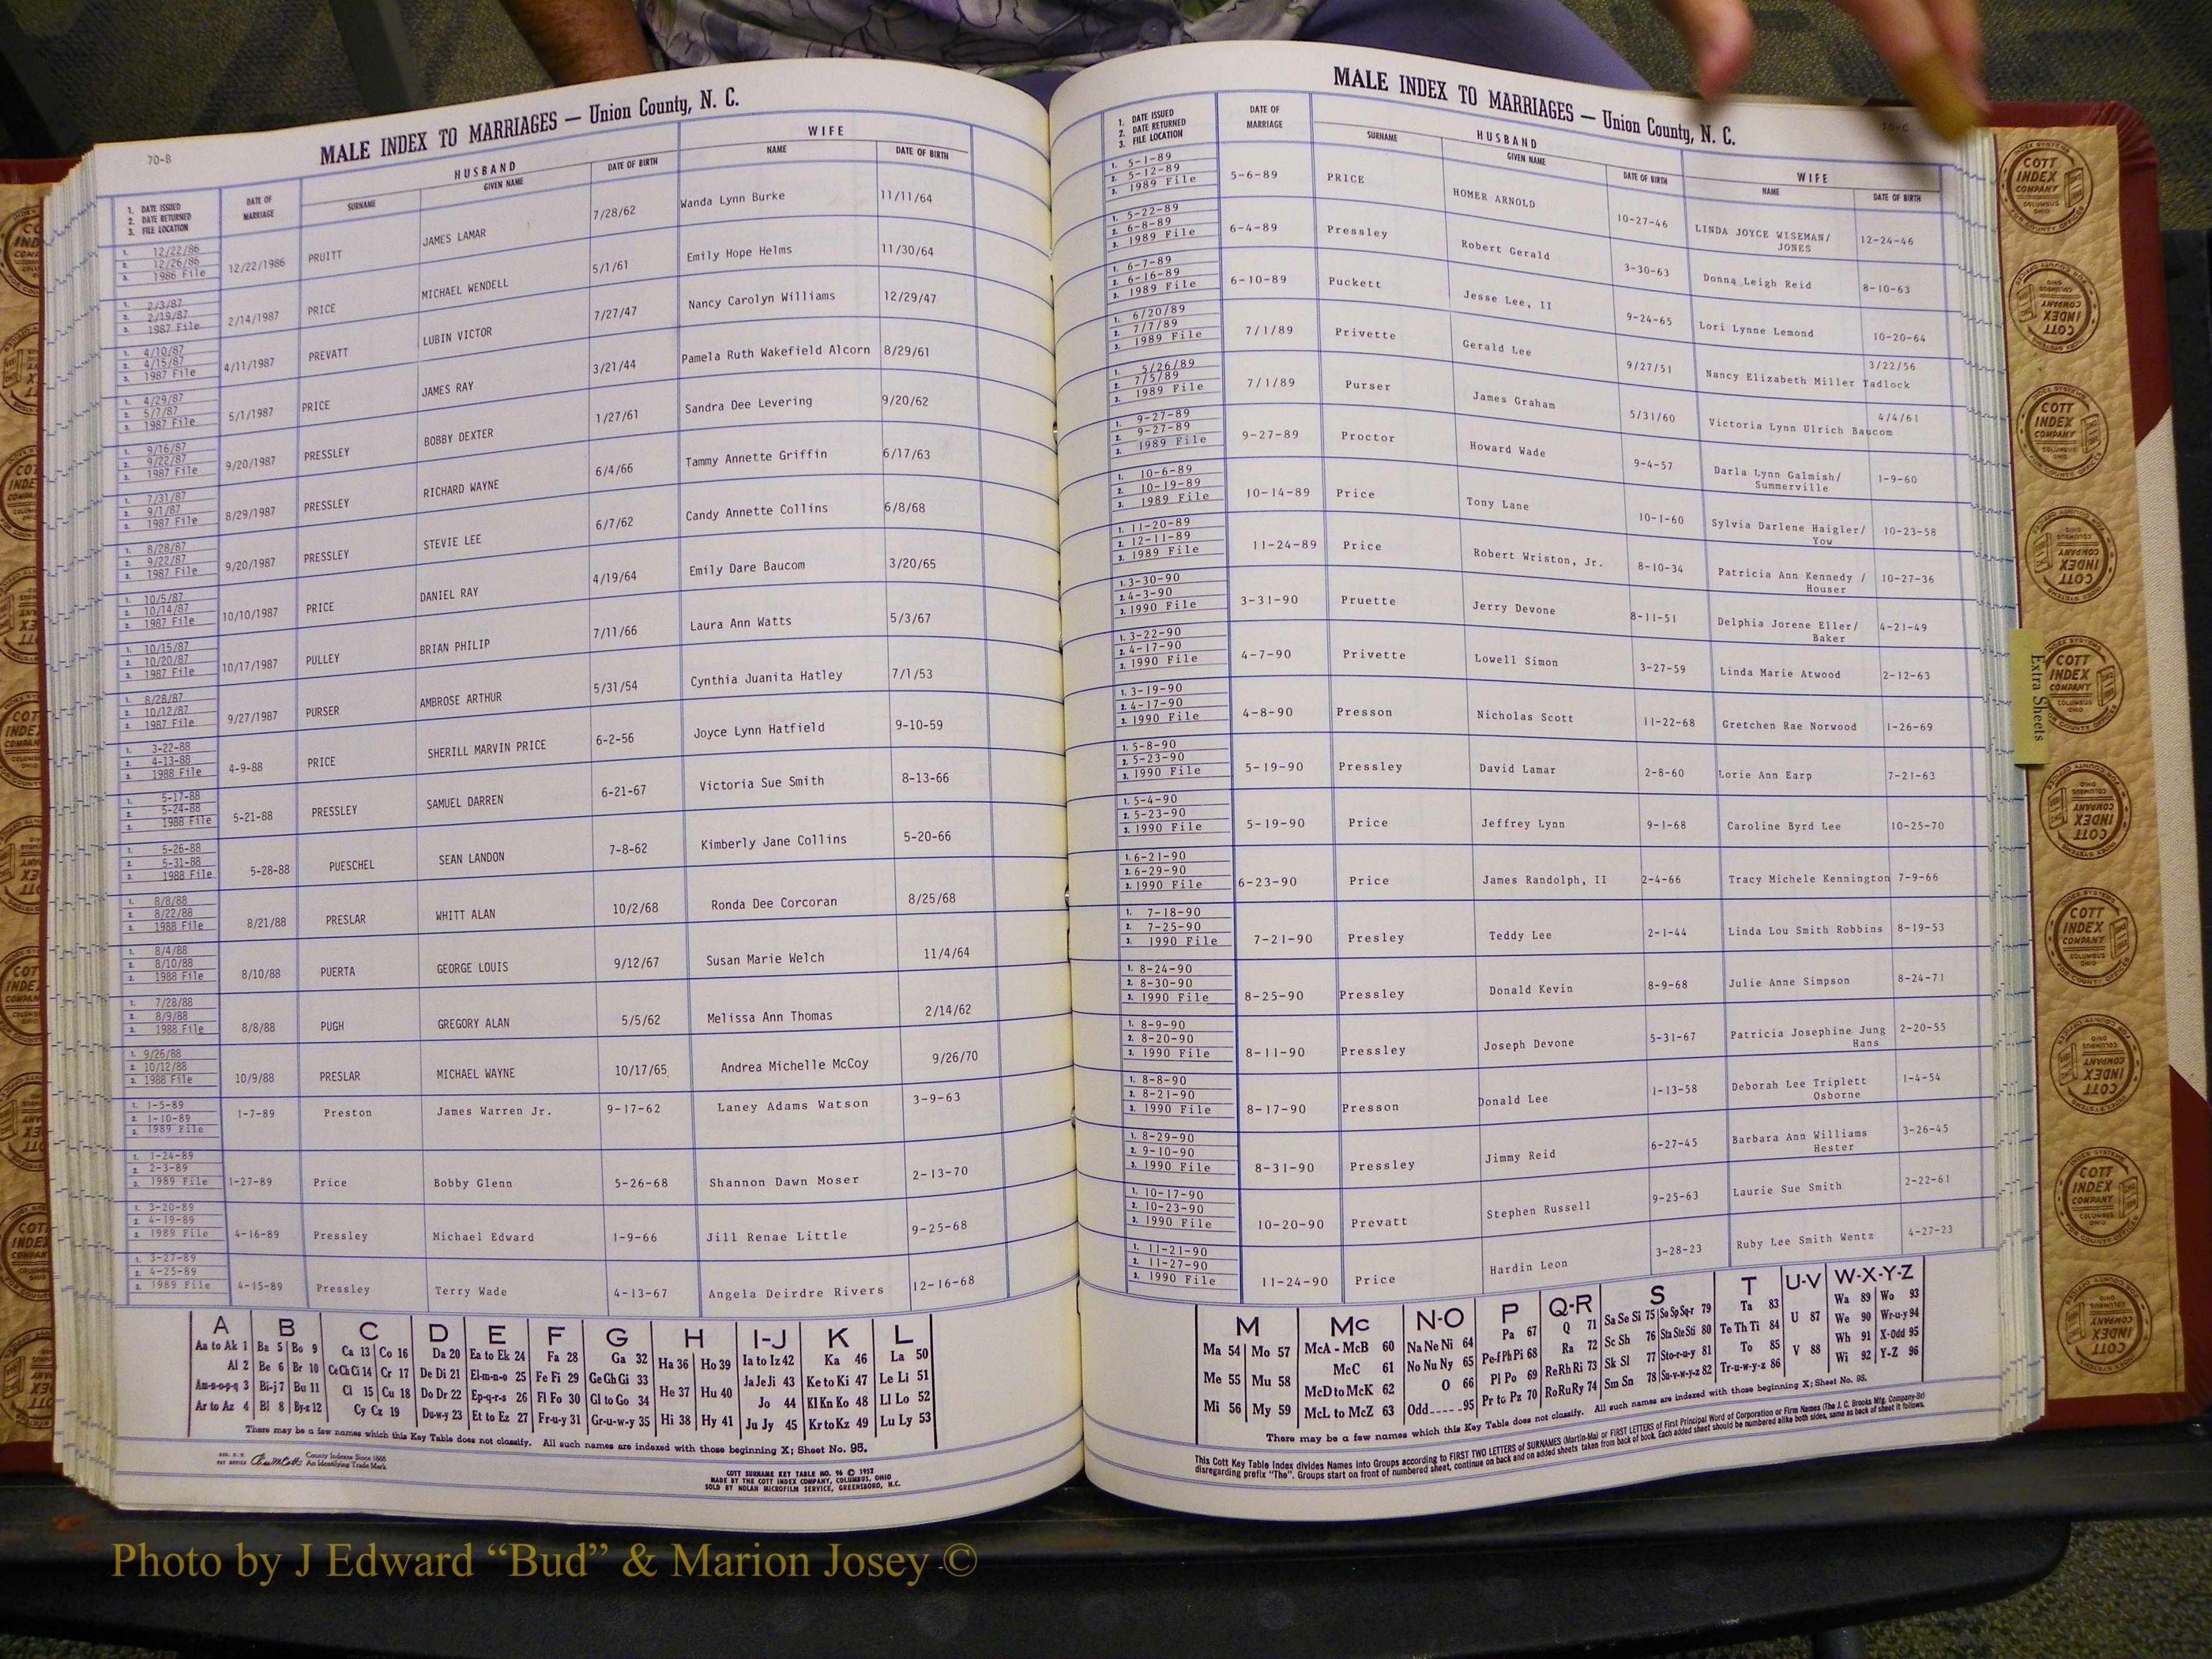 70-B
MALE INDEX TO MARRIAGES — Union County, N. C.
1. DATE ISSUED
2. DATE RETURNED
3. FILE LOCATION
DATE OF MARRIAGE
HUSBAND
SURNAME GIVEN NAME DATE OF BIRTH
WIFE
NAME DATE OF BIRTH
1. 12/22/86
2. 12/26/86
3. 1986 File
12/22/1986 PRUITT JAMES LAMAR 7/28/62 Wanda Lynn Burke 11/11/64
1. 2/3/87
2. 2/19/87
3. 1987 File
2/14/1987 PRICE MICHAEL WENDELL 5/1/61 Emily Hope Helms 11/30/64
1. 4/10/87
2. 4/15/87
3. 1987 File
4/11/1987 PREVATT LUBIN VICTOR 7/27/47 Nancy Carolyn Williams 12/29/47
1. 4/29/87
2. 5/7/87
3. 1987 File
5/1/1987 PRICE JAMES RAY 3/21/44 Pamela Ruth Wakefield Alcorn 8/29/61
1. 9/16/87
2. 9/22/87
3. 1987 File
9/20/1987 PRESSLEY BOBBY DEXTER 1/27/61 Sandra Dee Levering 9/20/62
1. 7/31/87
2. 9/1/87
3. 1987 File
8/29/1987 PRESSLEY RICHARD WAYNE 6/4/66 Tammy Annette Griffin 6/17/63
1. 8/28/87
2. 9/22/87
3. 1987 File
9/20/1987 PRESSLEY STEVIE LEE 6/7/62 Candy Annette Collins 6/8/68
1. 10/5/87
2. 10/14/87
3. 1987 File
10/10/1987 PRICE DANIEL RAY 4/19/64 Emily Dare Baucom 3/20/65
1. 10/15/87
2. 10/20/87
3. 1987 File
10/17/1987 PULLEY BRIAN PHILIP 7/11/66 Laura Ann Watts 5/3/67
1. 8/28/87
2. 10/12/87
3. 1987 File
9/27/1987 PURSER AMBROSE ARTHUR 5/31/54 Cynthia Juanita Hatley 7/1/53
1. 3-22-88
2. 4-13-88
3. 1988 File
4-9-88 PRICE SHERILL MARVIN PRICE 6-2-56 Joyce Lynn Hatfield 9-10-59
1. 5-17-88
2. 5-24-88
3. 1988 File
5-21-88 PRESSLEY SAMUEL DARREN 6-21-67 Victoria Sue Smith 8-13-66
1. 5-26-88
2. 5-31-88
3. 1988 File
5-28-88 PUESCHEL SEAN LANDON 7-8-62 Kimberly Jane Collins 5-20-66
1. 8/8/88
2. 8/22/88
3. 1988 File
8/21/88 PRESLAR WHITT ALAN 10/2/68 Ronda Dee Corcoran 8/25/68
1. 8/4/88
2. 8/10/88
3. 1988 File
8/10/88 PUERTA GEORGE LOUIS 9/12/67 Susan Marie Welch 11/4/64
1. 7/28/88
2. 8/9/88
3. 1988 File
8/8/88 PUGH GREGORY ALAN 5/5/62 Melissa Ann Thomas 2/14/62
1. 9/26/88
2. 10/12/88
3. 1988 File
10/9/88 PRESLAR MICHAEL WAYNE 10/17/65 Andrea Michelle McCoy 9/26/70
1. 1-5-89
2. 1-10-89
3. 1989 File
1-7-89 Preston James Warren Jr. 9-17-62 Laney Adams Watson 3-9-63
1. 1-24-89
2. 2-3-89
3. 1989 File
1-27-89 Price Bobby Glenn 5-26-68 Shannon Dawn Moser 2-13-70
1. 3-20-89
2. 4-19-89
3. 1989 File
4-16-89 Pressley Michael Edward 1-9-66 Jill Renae Little 9-25-68
1. 3-27-89
2. 4-25-89
3. 1989 File
4-15-89 Pressley Terry Wade 4-13-67 Angela Deirdre Rivers 12-16-68
A B C D E F G H I-J K L
Aa to Ak 1 Ba 5 Bo 9 Ca 13 Co 16 Da 20 Ea to Ek 24 Fa 28 Ga 32 Ha 36 Ho 39 Ia to Iz 42 Ka 46 La 50
Al 2 Be 6 Br 10 Ce Ch Ci 14 Cr 17 De Di 21 El-m-n-o 25 Fe Fi 29 Ge Gh Gi 33 He 37 Hu 40 Ja Je Ji 43 Ke to Ki 47 Le Li 51
Am-n-o-p-q 3 Bi-j 7 Bu 11 Cl 15 Cu 18 Do Dr 22 Ep-q-r-s 26 Fl Fo 30 Gl to Go 34 Hi 38 Hy 41 Jo 44 Kl Kn Ko 48 Ll Lo 52
Ar to Az 4 Bl 8 By-z 12 Cy Cz 19 Du-w-y 23 Et to Ez 27 Fr-u-y 31 Gr-u-w-y 35 Ju Jy 45 Kr to Kz 49 Lu Ly 53
There may be a few names which this Key Table does not classify. All such names are indexed with those beginning X; Sheet No. 95.
County Indexes Since 1888
An Identifying Trade Mark
COTT SURNAME KEY TABLE NO. 96 © 1952
MADE BY THE COTT INDEX COMPANY, COLUMBUS, OHIO
SOLD BY NOLAN MICROFILM SERVICE, GREENSBORO, N.C.
MALE INDEX TO MARRIAGES — Union County, N. C.
1. DATE ISSUED
2. DATE RETURNED
3. FILE LOCATION
DATE OF MARRIAGE
HUSBAND
SURNAME GIVEN NAME DATE OF BIRTH
WIFE
NAME DATE OF BIRTH
1. 5-1-89
2. 5-12-89
3. 1989 File
5-6-89 PRICE HOMER ARNOLD 10-27-46 LINDA JOYCE WISEMAN/ 12-24-46
JONES
1. 5-22-89
2. 6-8-89
3. 1989 File
6-4-89 Pressley Robert Gerald 3-30-63 Donna Leigh Reid 8-10-63
1. 6-7-89
2. 6-16-89
3. 1989 File
6-10-89 Puckett Jesse Lee, II 9-24-65 Lori Lynne Lemond 10-20-64
1. 6/20/89
2. 7/7/89
3. 1989 File
7/1/89 Privette Gerald Lee 9/27/51 Nancy Elizabeth Miller Tadlock 3/22/56
1. 5/26/89
2. 7/5/89
3. 1989 File
7/1/89 Purser James Graham 5/31/60 Victoria Lynn Ulrich Baucom 4/4/61
1. 9-27-89
2. 9-27-89
3. 1989 File
9-27-89 Proctor Howard Wade 9-4-57 Darla Lynn Galmish/ 1-9-60
Summerville
1. 10-6-89
2. 10-19-89
3. 1989 File
10-14-89 Price Tony Lane 10-1-60 Sylvia Darlene Haigler/ 10-23-58
Yow
1. 11-20-89
2. 12-11-89
3. 1989 File
11-24-89 Price Robert Wriston, Jr. 8-10-34 Patricia Ann Kennedy / 10-27-36
Houser
1. 3-30-90
2. 4-3-90
3. 1990 File
3-31-90 Pruette Jerry Devone 8-11-51 Delphia Jorene Eller/ 4-21-49
Baker
1. 3-22-90
2. 4-17-90
3. 1990 File
4-7-90 Privette Lowell Simon 3-27-59 Linda Marie Atwood 2-12-63
1. 3-19-90
2. 4-17-90
3. 1990 File
4-8-90 Presson Nicholas Scott 11-22-68 Gretchen Rae Norwood 1-26-69
1. 5-8-90
2. 5-23-90
3. 1990 File
5-19-90 Pressley David Lamar 2-8-60 Lorie Ann Earp 7-21-63
1. 5-4-90
2. 5-23-90
3. 1990 File
5-19-90 Price Jeffrey Lynn 9-1-68 Caroline Byrd Lee 10-25-70
1. 6-21-90
2. 6-29-90
3. 1990 File
6-23-90 Price James Randolph, II 2-4-66 Tracy Michele Kennington 7-9-66
1. 7-18-90
2. 7-25-90
3. 1990 File
7-21-90 Presley Teddy Lee 2-1-44 Linda Lou Smith Robbins 8-19-53
1. 8-24-90
2. 8-30-90
3. 1990 File
8-25-90 Pressley Donald Kevin 8-9-68 Julie Anne Simpson 8-24-71
1. 8-9-90
2. 8-20-90
3. 1990 File
8-11-90 Pressley Joseph Devone 5-31-67 Patricia Josephine Jung 2-20-55
Hans
1. 8-8-90
2. 8-21-90
3. 1990 File
8-17-90 Presson Donald Lee 1-13-58 Deborah Lee Triplett 1-4-54
Osborne
1. 8-29-90
2. 9-10-90
3. 1990 File
8-31-90 Pressley Jimmy Reid 6-27-45 Barbara Ann Williams 3-26-45
Hester
1. 10-17-90
2. 10-23-90
3. 1990 File
10-20-90 Prevatt Stephen Russell 9-25-63 Laurie Sue Smith 2-22-61
1. 11-21-90
2. 11-27-90
3. 1990 File
11-24-90 Price Hardin Leon 3-28-23 Ruby Lee Smith Wentz 4-27-23
M Mc N-O P Q-R S T U-V W-X-Y-Z
Ma 54 Mo 57 McA - McB 60 Na Ne Ni 64 Pa 67 Q 71 Sa Se Si 75 So Sp Sq-r 79 Ta 83 U 87 Wa 89 Wo 93
Me 55 Mu 58 McC 61 No Nu Ny 65 Pe-f Ph Pi 68 Ra 72 Sc Sh 76 Sta Ste Sti 80 Te Th Ti 84 V 88 We 90 Wr-u-y 94
Mi 56 My 59 McD to McK 62 O 66 Pl Po 69 Re Rh Ri 73 Sk Sl 77 Sto-r-u-y 81 To 85 Wh 91 X-Odd 95
McL to McZ 63 Odd 95 Pr to Pz 70 Ro Ru Ry 74 Sm Sn 78 Su-v-w-y-z 82 Tr-u-w-y-z 86 Wi 92 Y-Z 96
There may be a few names which this Key Table does not classify. All such names are indexed with those beginning X; Sheet No. 95.
This Cott Key Table Index divides Names into Groups according to FIRST TWO LETTERS of SURNAMES (Martin-Ma) or FIRST LETTERS of First Principal Word of Corporation or Firm Names (The J. C. Brooks Mfg. Company-Br)
disregarding prefix "The". Groups start on front of numbered sheet, continue on back and on added sheets taken from back of book. Each added sheet should be numbered alike both sides, same as back of sheet it follows.
Extra Sheets
COTT
INDEX
COMPANY
COLUMBUS
OHIO
Photo by J Edward “Bud” & Marion Josey ©